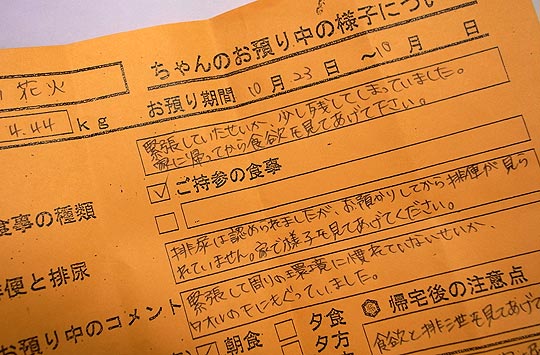 ちゃんのお預り中の様子につい
花火
お預り期間 10月23日 ~10月 日
4.44 kg
緊張していたせいか、少し残してしまっていました。
家に帰ってから食欲を見てあげて下さい。
ご持参の食事
食事の種類
排尿は認められましたが、お預かりしてから排便が見ら
れていません。家で様子を見てあげてください。
便と排尿
緊張して周りの環境に慣れていないせいか、
タオルの下にもぐっていました。
お預り中のコメント
帰宅後の注意点
朝食
夕食
夕方
食欲と排泄を見てあげて